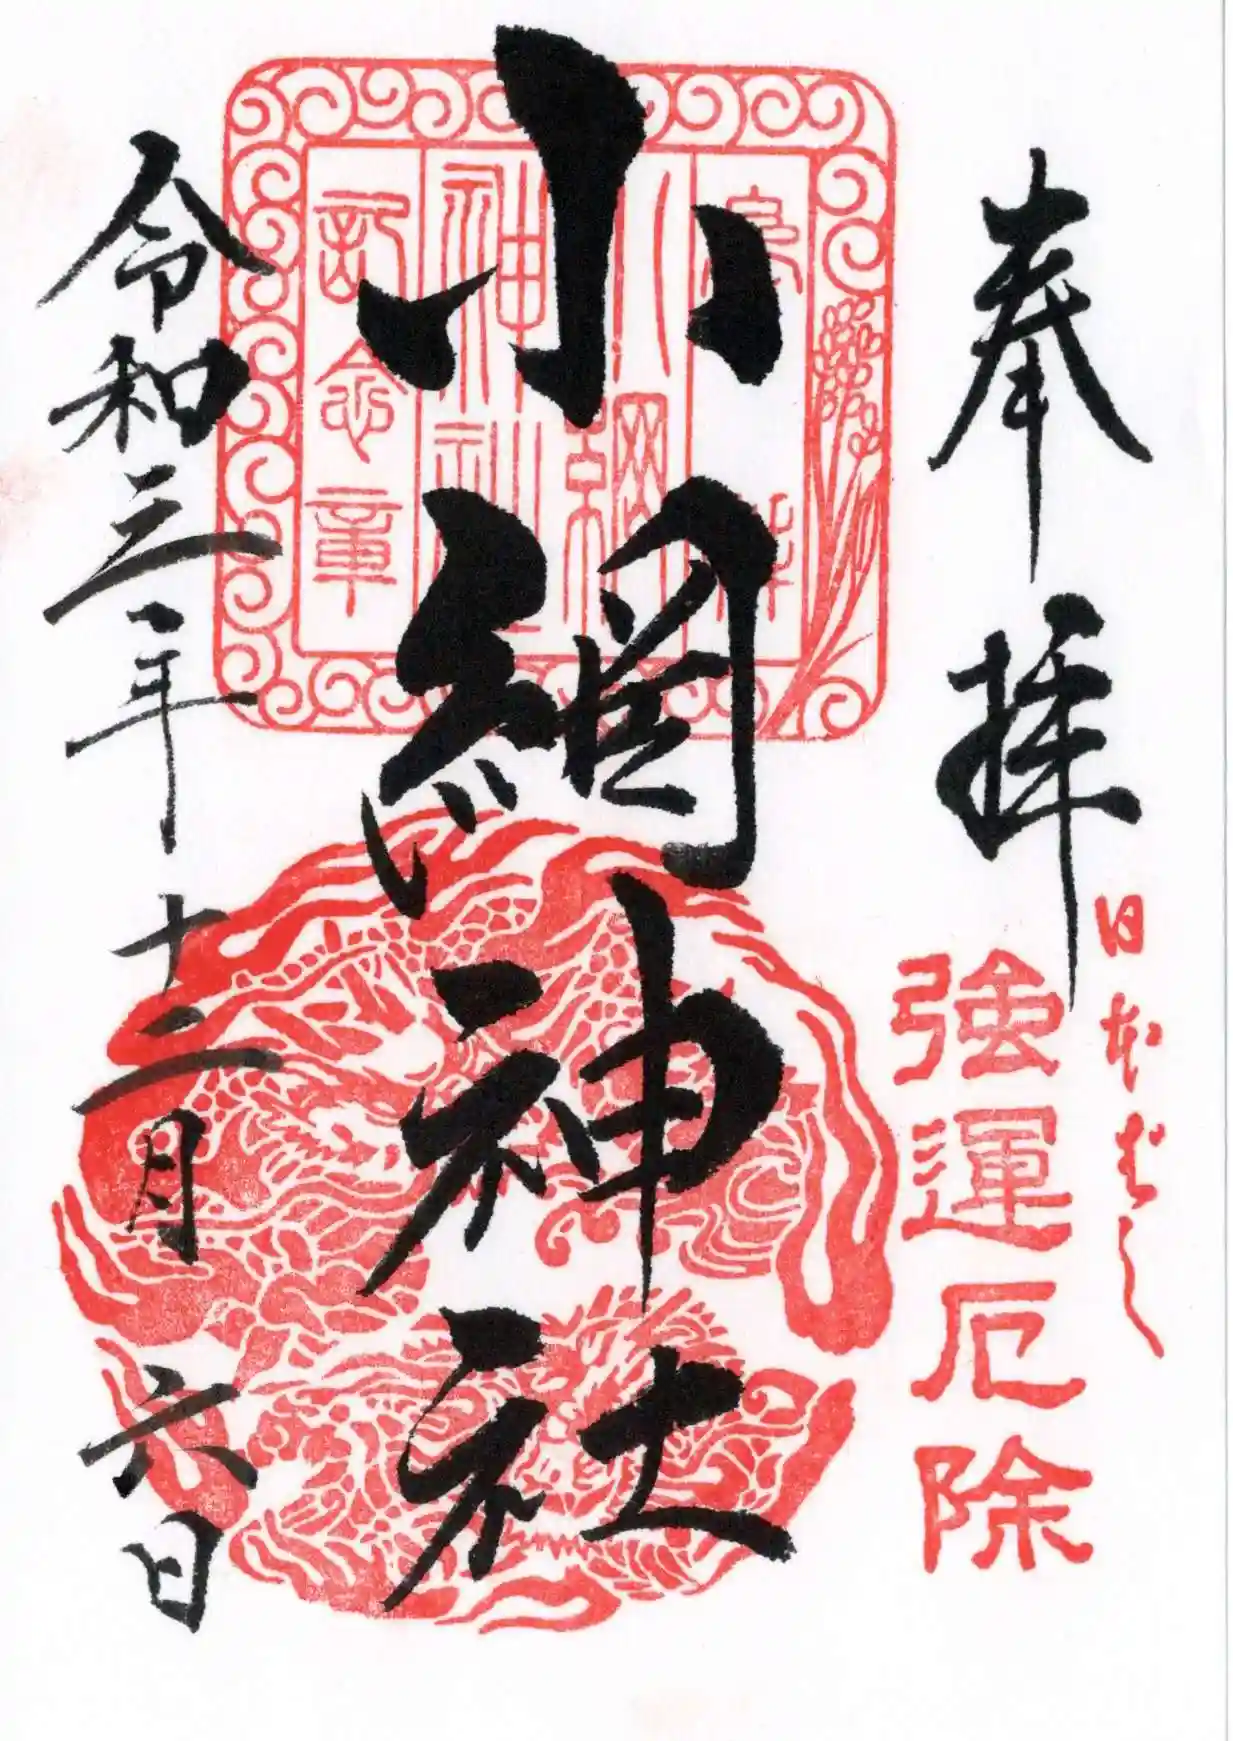 奉拝
日本ばし
強運厄除
小網神社
小網
神社
記念章
令和三年十二月六日